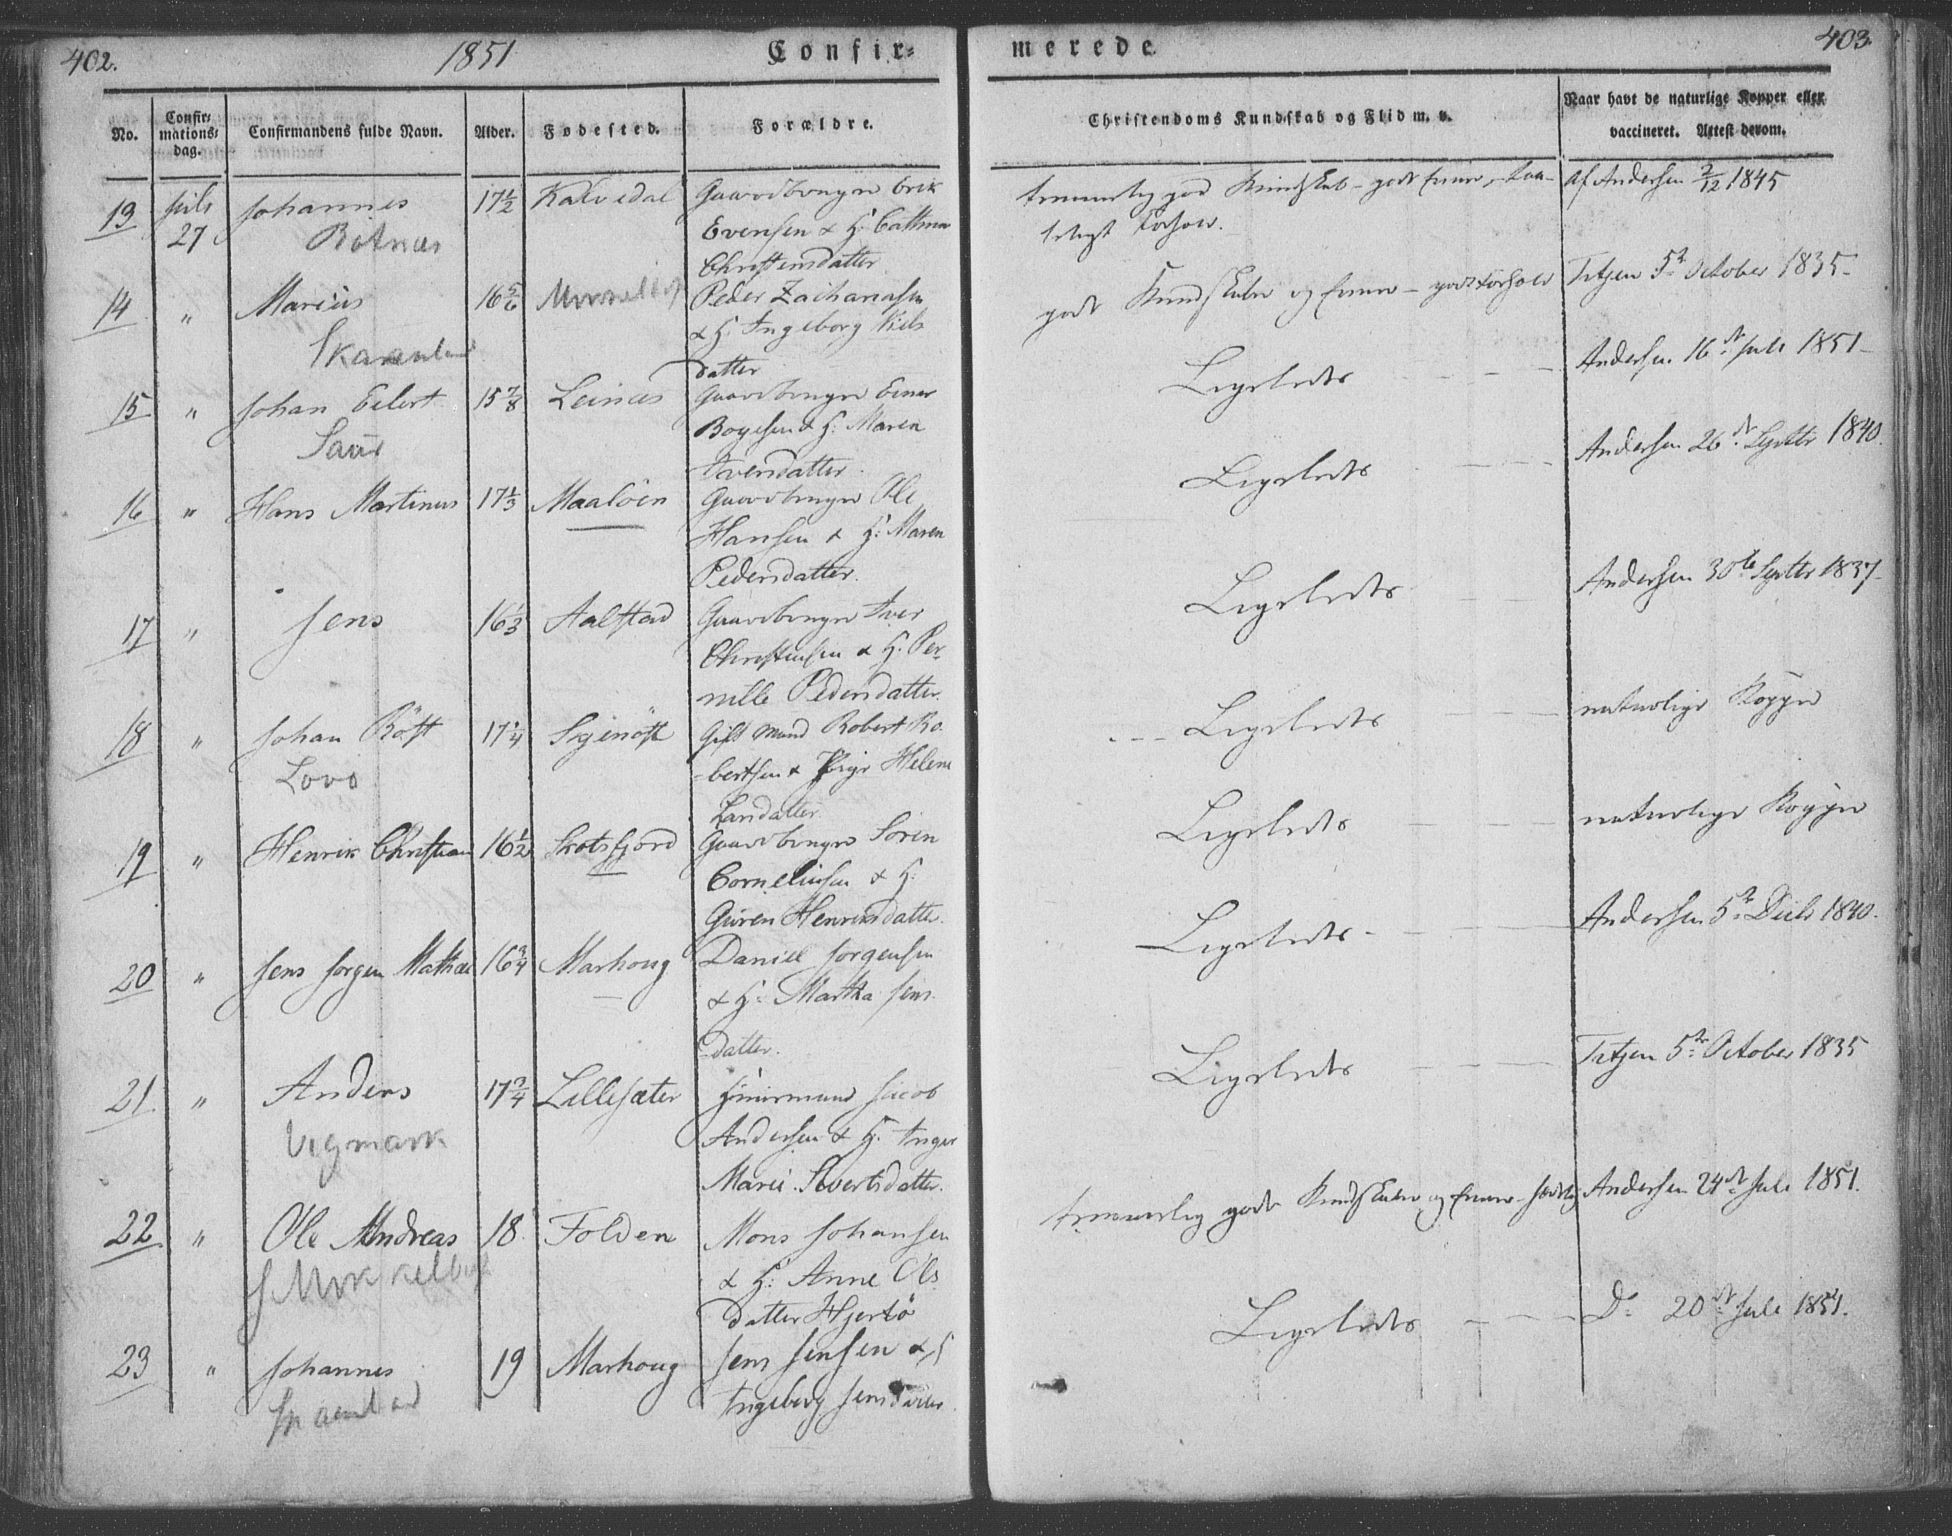 402.
1851
Confir-
merede
403.
No.
Confir-
mations-
dag.
Confirmandens fulde Navn.
Alder.
Fødested.
Forældre.
Christendoms Kundskab og Flid m. v.
Naar havt de naturlige Kopper eller
vaccineret. Attest derom.
13 Juli Johannes 17½ Kalvedal Gaardbruger Erik
27 Botnæs Evensen & H: Cathrina
Christensdatter
temmelig god Kundskab - godt Emne -
Forhold.
Af Andersen 2/12 1845
14 " Marcus 16 5/6 Peder Zachariasen
& H: Ingeborg Niels
datter
godt Kundskaber og Emne - godt Forhold
Tetzen 5t October 1835
15 " Johan Eilert 15 7/8 Leinæs Gaardbruger Einer
Saur Bogesen & H: Maren
Iversdatter.
Ligeledes
Andersen 16de Juli 1851
16 " Hans Martinus 17⅓ Maaløen Gaardbruger Ole
Hansen & H: Maren
Pedersdatter.
Ligeledes
Andersen 26de Septbr 1840.
17 " Jens 16⅓ Aalstad Gaardbruger Iver
Christensen & H. Per-
nille Pedersdatter.
Ligeledes
Andersen 30te Septbr 1837
18 " Johan Röst 17¼ Gift Mand Robert Ro
Lovö -bertsen & Pige Helene
Larsdatter
Ligeledes
naturlige Kopper
19 " Henrik Christian 16½ Skotsfjord Gaardbruger Sören
Corneliusen & H:
Guren Henriksdatter.
Ligeledes
naturlige Kopper
20 " Jens Jørgen Mathias 16¾ Marhoug Daniel Jørgensen
& H: Martha Jens
datter.
Ligeledes
Andersen 5te Decbr 1840.
21 " Anders 17¾ Lillesæter Jacob
Vegmark Andersen & H. Inger
Marie Sivertsdatter.
Ligeledes
Tetzen 5te October 1835
22 " Ole Andreas 18 Folden Mons Johansen
Mikkelbost & H: Anne Ols
datter Hjertö
temmelig godt Kundskaber og Emne
Andersen 24de Juli 1851.
23 " Johannes 19 Marhoug Jens Jensen & H
Ingeborg Jensdatter
Ligeledes
Do 20de Juli 1851.